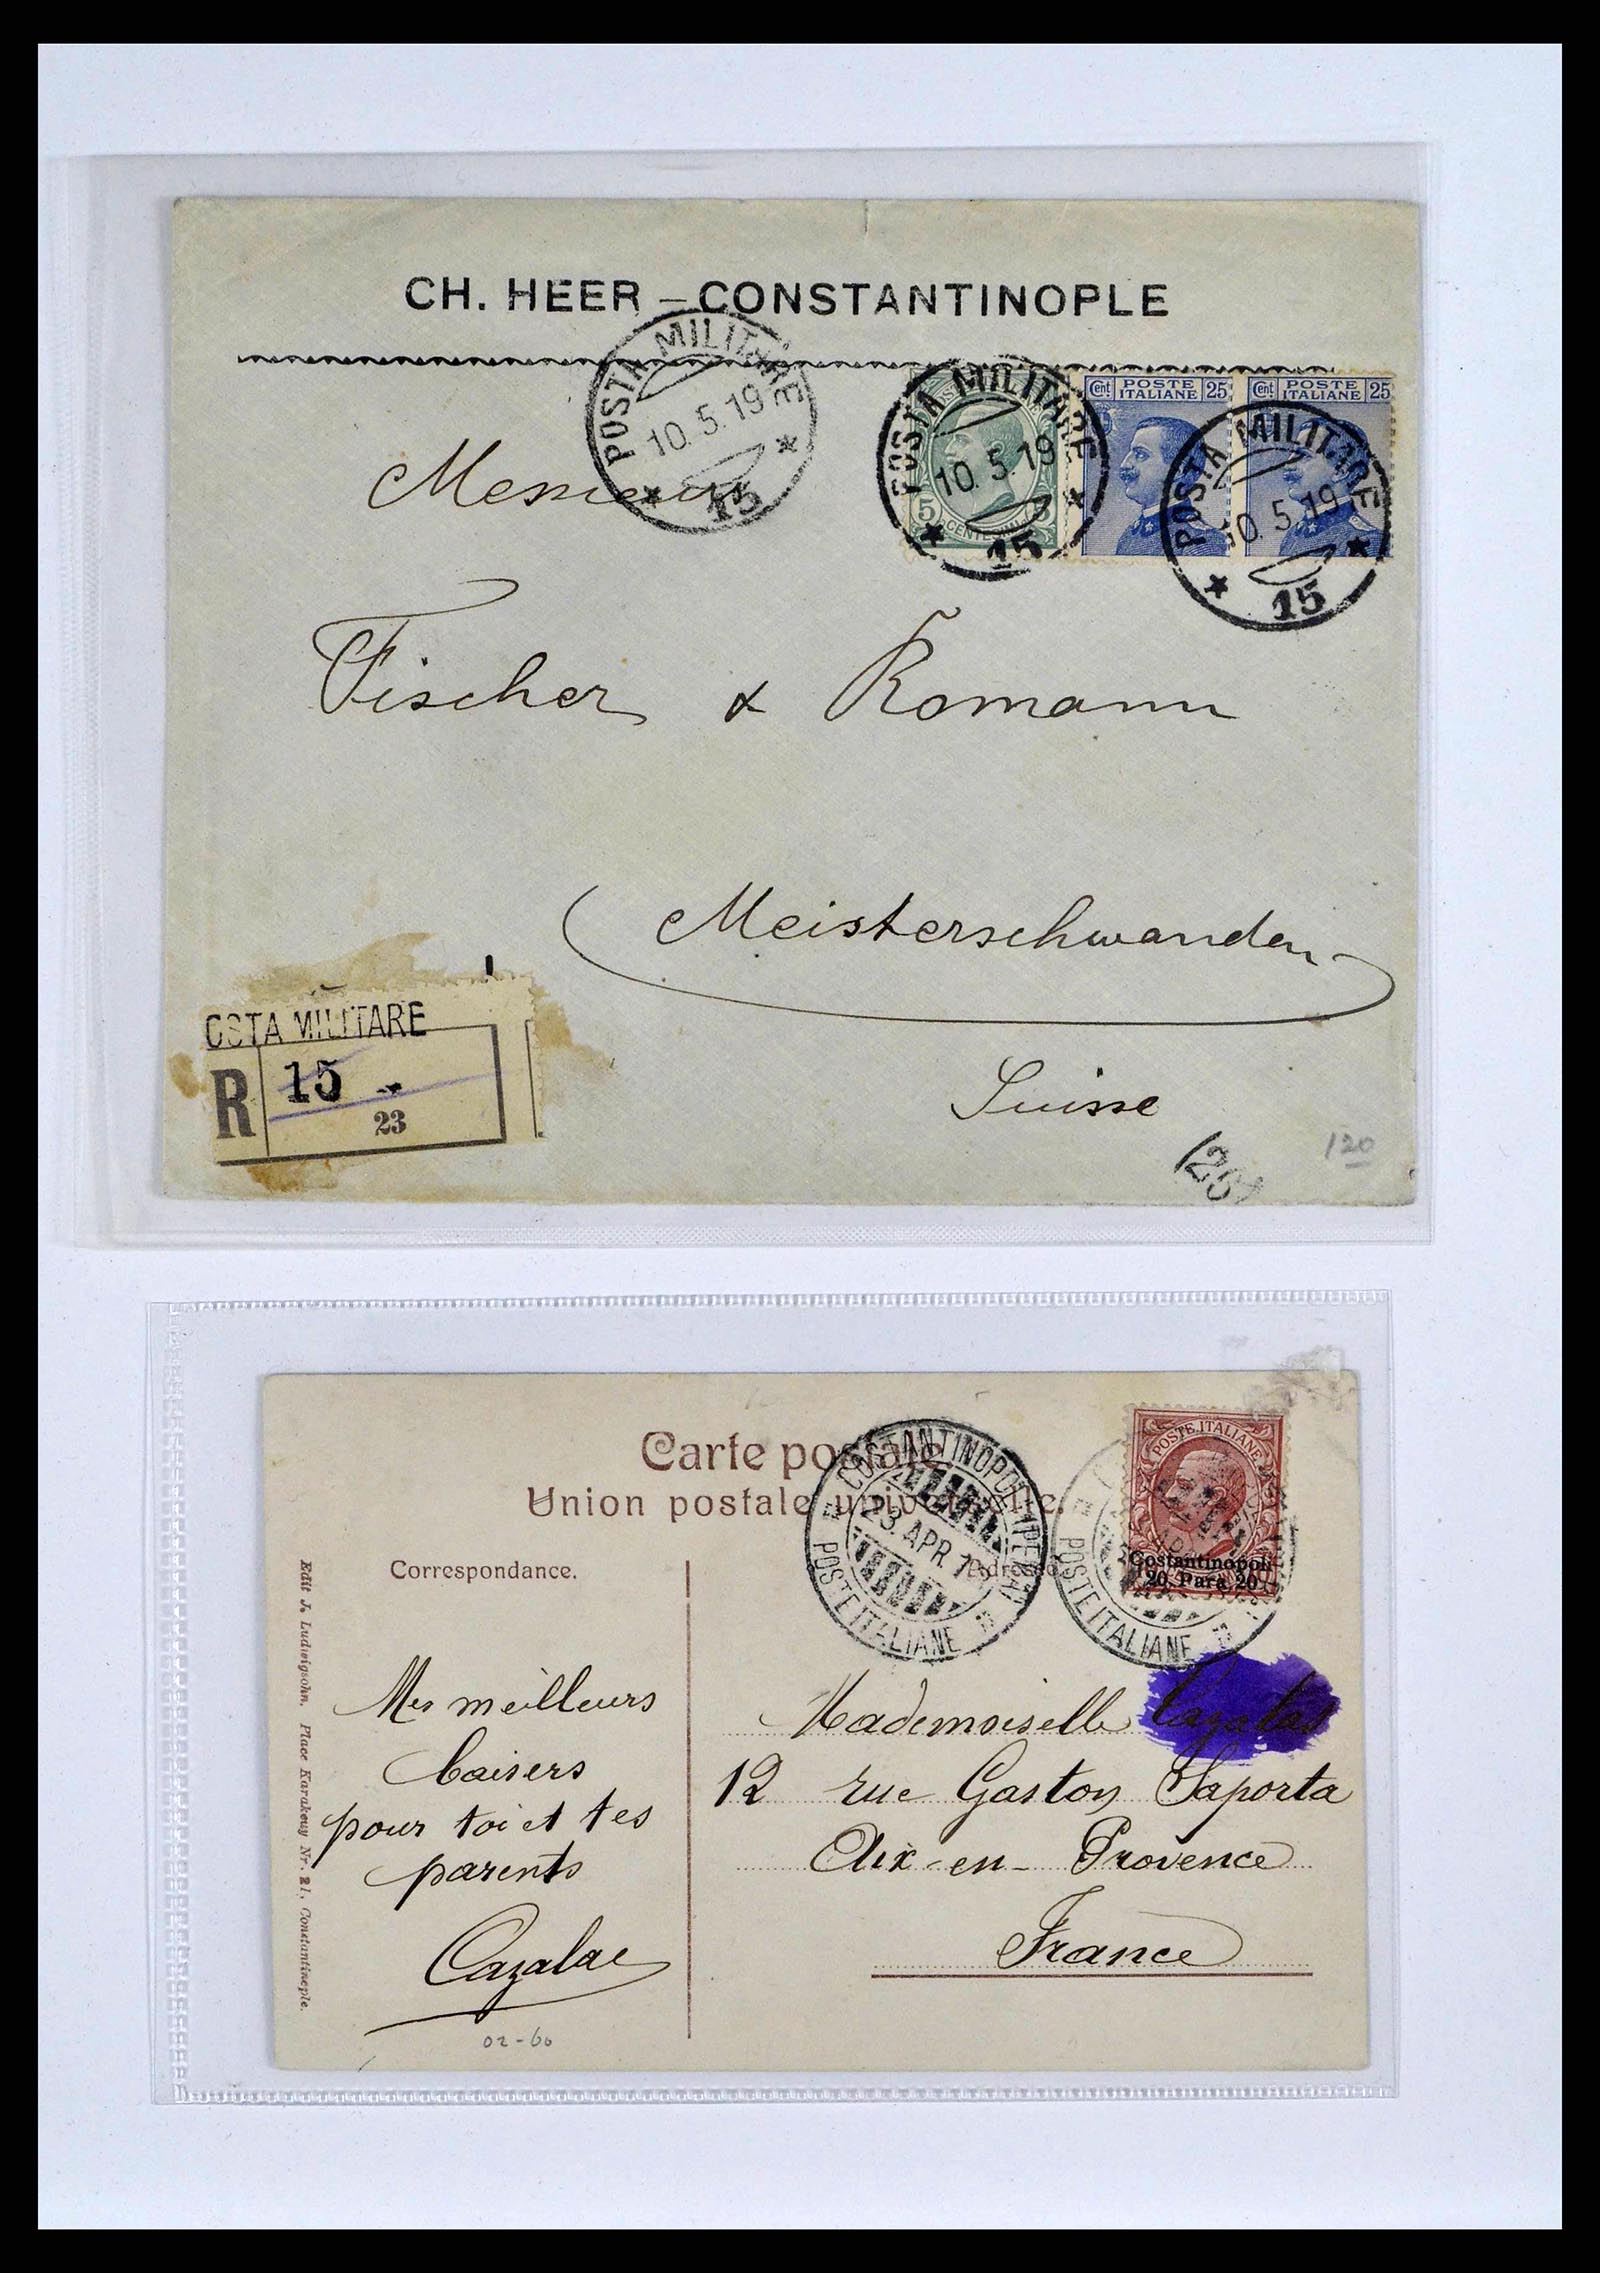 CH. HEER – CONSTANTINOPLE
POSTA MILITARE
10.5.19
15
POSTA MILITARE
10.5.19
15
5 5
Cent. POSTE ITALIANE 25
Cent. POSTE ITALIANE 25
POSTA MILITARE
10.5.19
15
Messieurs
Fischer & Romann
Meisterschwanden
Suisse
OSTA MILITARE
R 15
23
120
Carte postale
Union postale universelle.
COSTANTINOPOLI
23. APR. 1
POSTE ITALIANE
POSTE ITALIANE
POSTE ITALIANE
Costantinopoli
20 Para 20
Correspondance.
Adresse
Edit J. Ludwigsohn, Place Karakeuy Nr. 21, Constantinople.
Mes meilleurs
baisers
pour toi et tes
parents
Cazalas
02-60
Mademoiselle Cazalas
12 rue Gaston Saporta
Aix-en-Provence
France